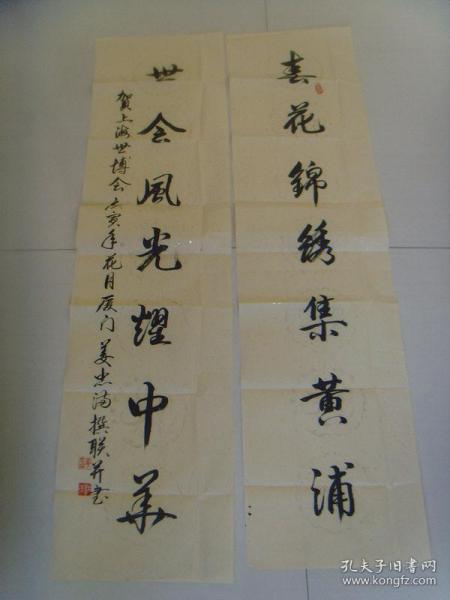 春花錦绣集黄浦
世会風光耀中华
賀上海世博会 寅年花月厦门姜忠满撰联并书
孔夫子旧书网
www.kongfz.com